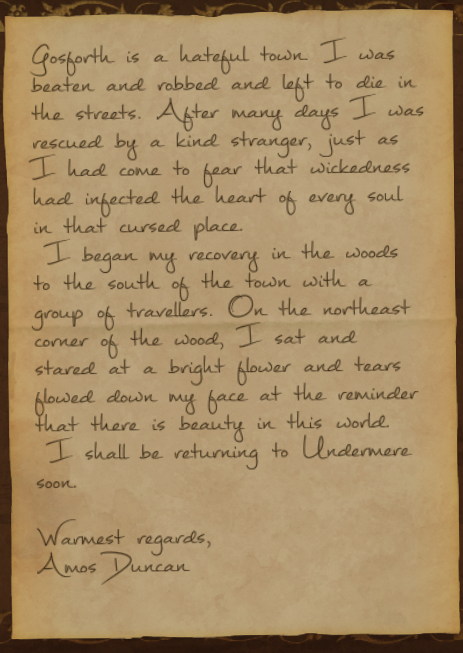 Gosforth is a hateful town I was
beaten and robbed and left to die in
the streets. After many days I was
rescued by a kind stranger, just as
I had come to fear that wickedness
had infected the heart of every soul
in that cursed place.
I began my recovery in the woods
to the south of the town with a
group of travellers. On the northeast
corner of the wood, I sat and
stared at a bright flower and tears
flowed down my face at the reminder
that there is beauty in this world.
I shall be returning to Undermere
soon.
Warmest regards,
Amos Duncan